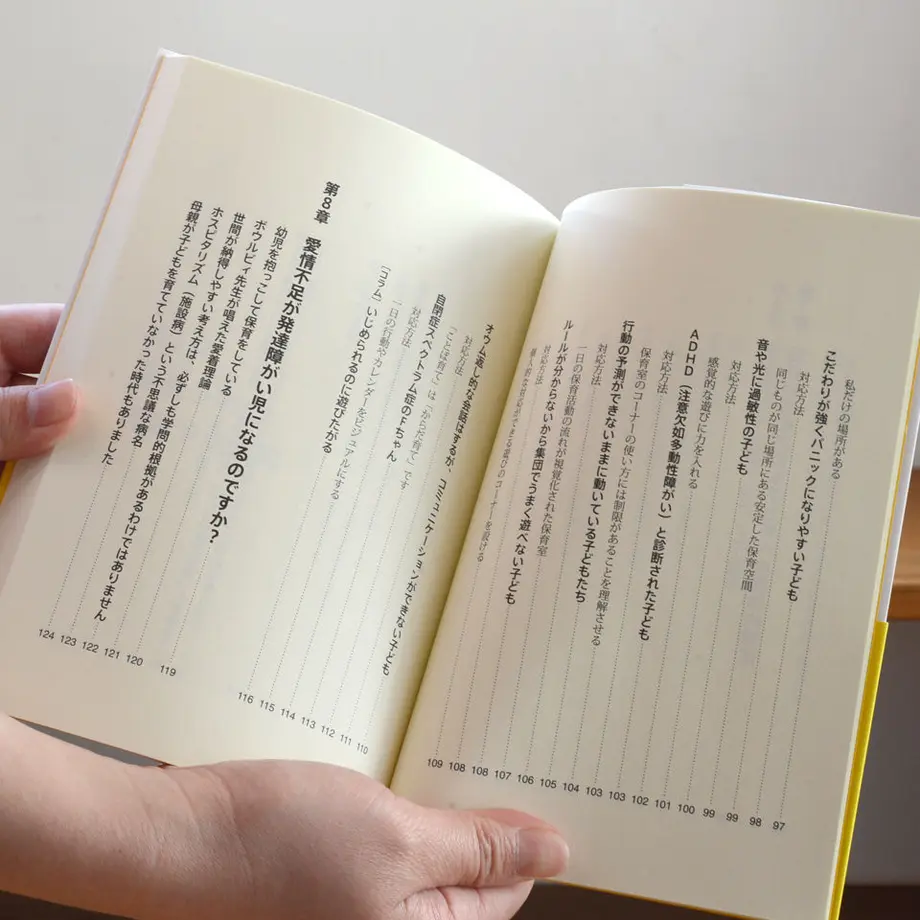 私だけの場所がある 97
こだわりが強くパニックになりやすい子ども 98
対応方法 99
同じものが同じ場所にある安定した保育空間 99
音や光に過敏性の子ども 100
対応方法 101
感覚的な遊びに力を入れる 102
ADHD(注意欠如多動性障がい)と診断された子ども 103
対応方法 103
保育室のコーナーの使い方には制限があることを理解させる 104
行動の予測ができないままに動いている子どもたち 105
対応方法 106
一日の保育活動の流れが視覚化された保育室 107
ルールが分からないから集団でうまく遊べない子ども 108
対応方法 108
個人的な対応ができる遊びのコーナーを設ける 109
オウム返し的な会話はするが、コミュニケーションができない子ども 110
対応方法 111
「ことば育て」は「からだ育て」です 112
自閉症スペクトラム症のFちゃん 113
対応方法 114
一日の行動やカレンダーをビジュアルにする 115
〔コラム〕いじめられるのに遊びたがる 116
第8章 愛情不足が発達障がい児になるのですか? 119
幼児を抱っこして保育をしている 120
ボウルビィ先生が唱えた愛着理論 121
世間が納得しやすい考え方は、必ずしも学問的根拠があるわけではありません 122
ホスピタリズム(施設病)という不思議な病名 123
母親が子どもを育てていなかった時代もありました 124